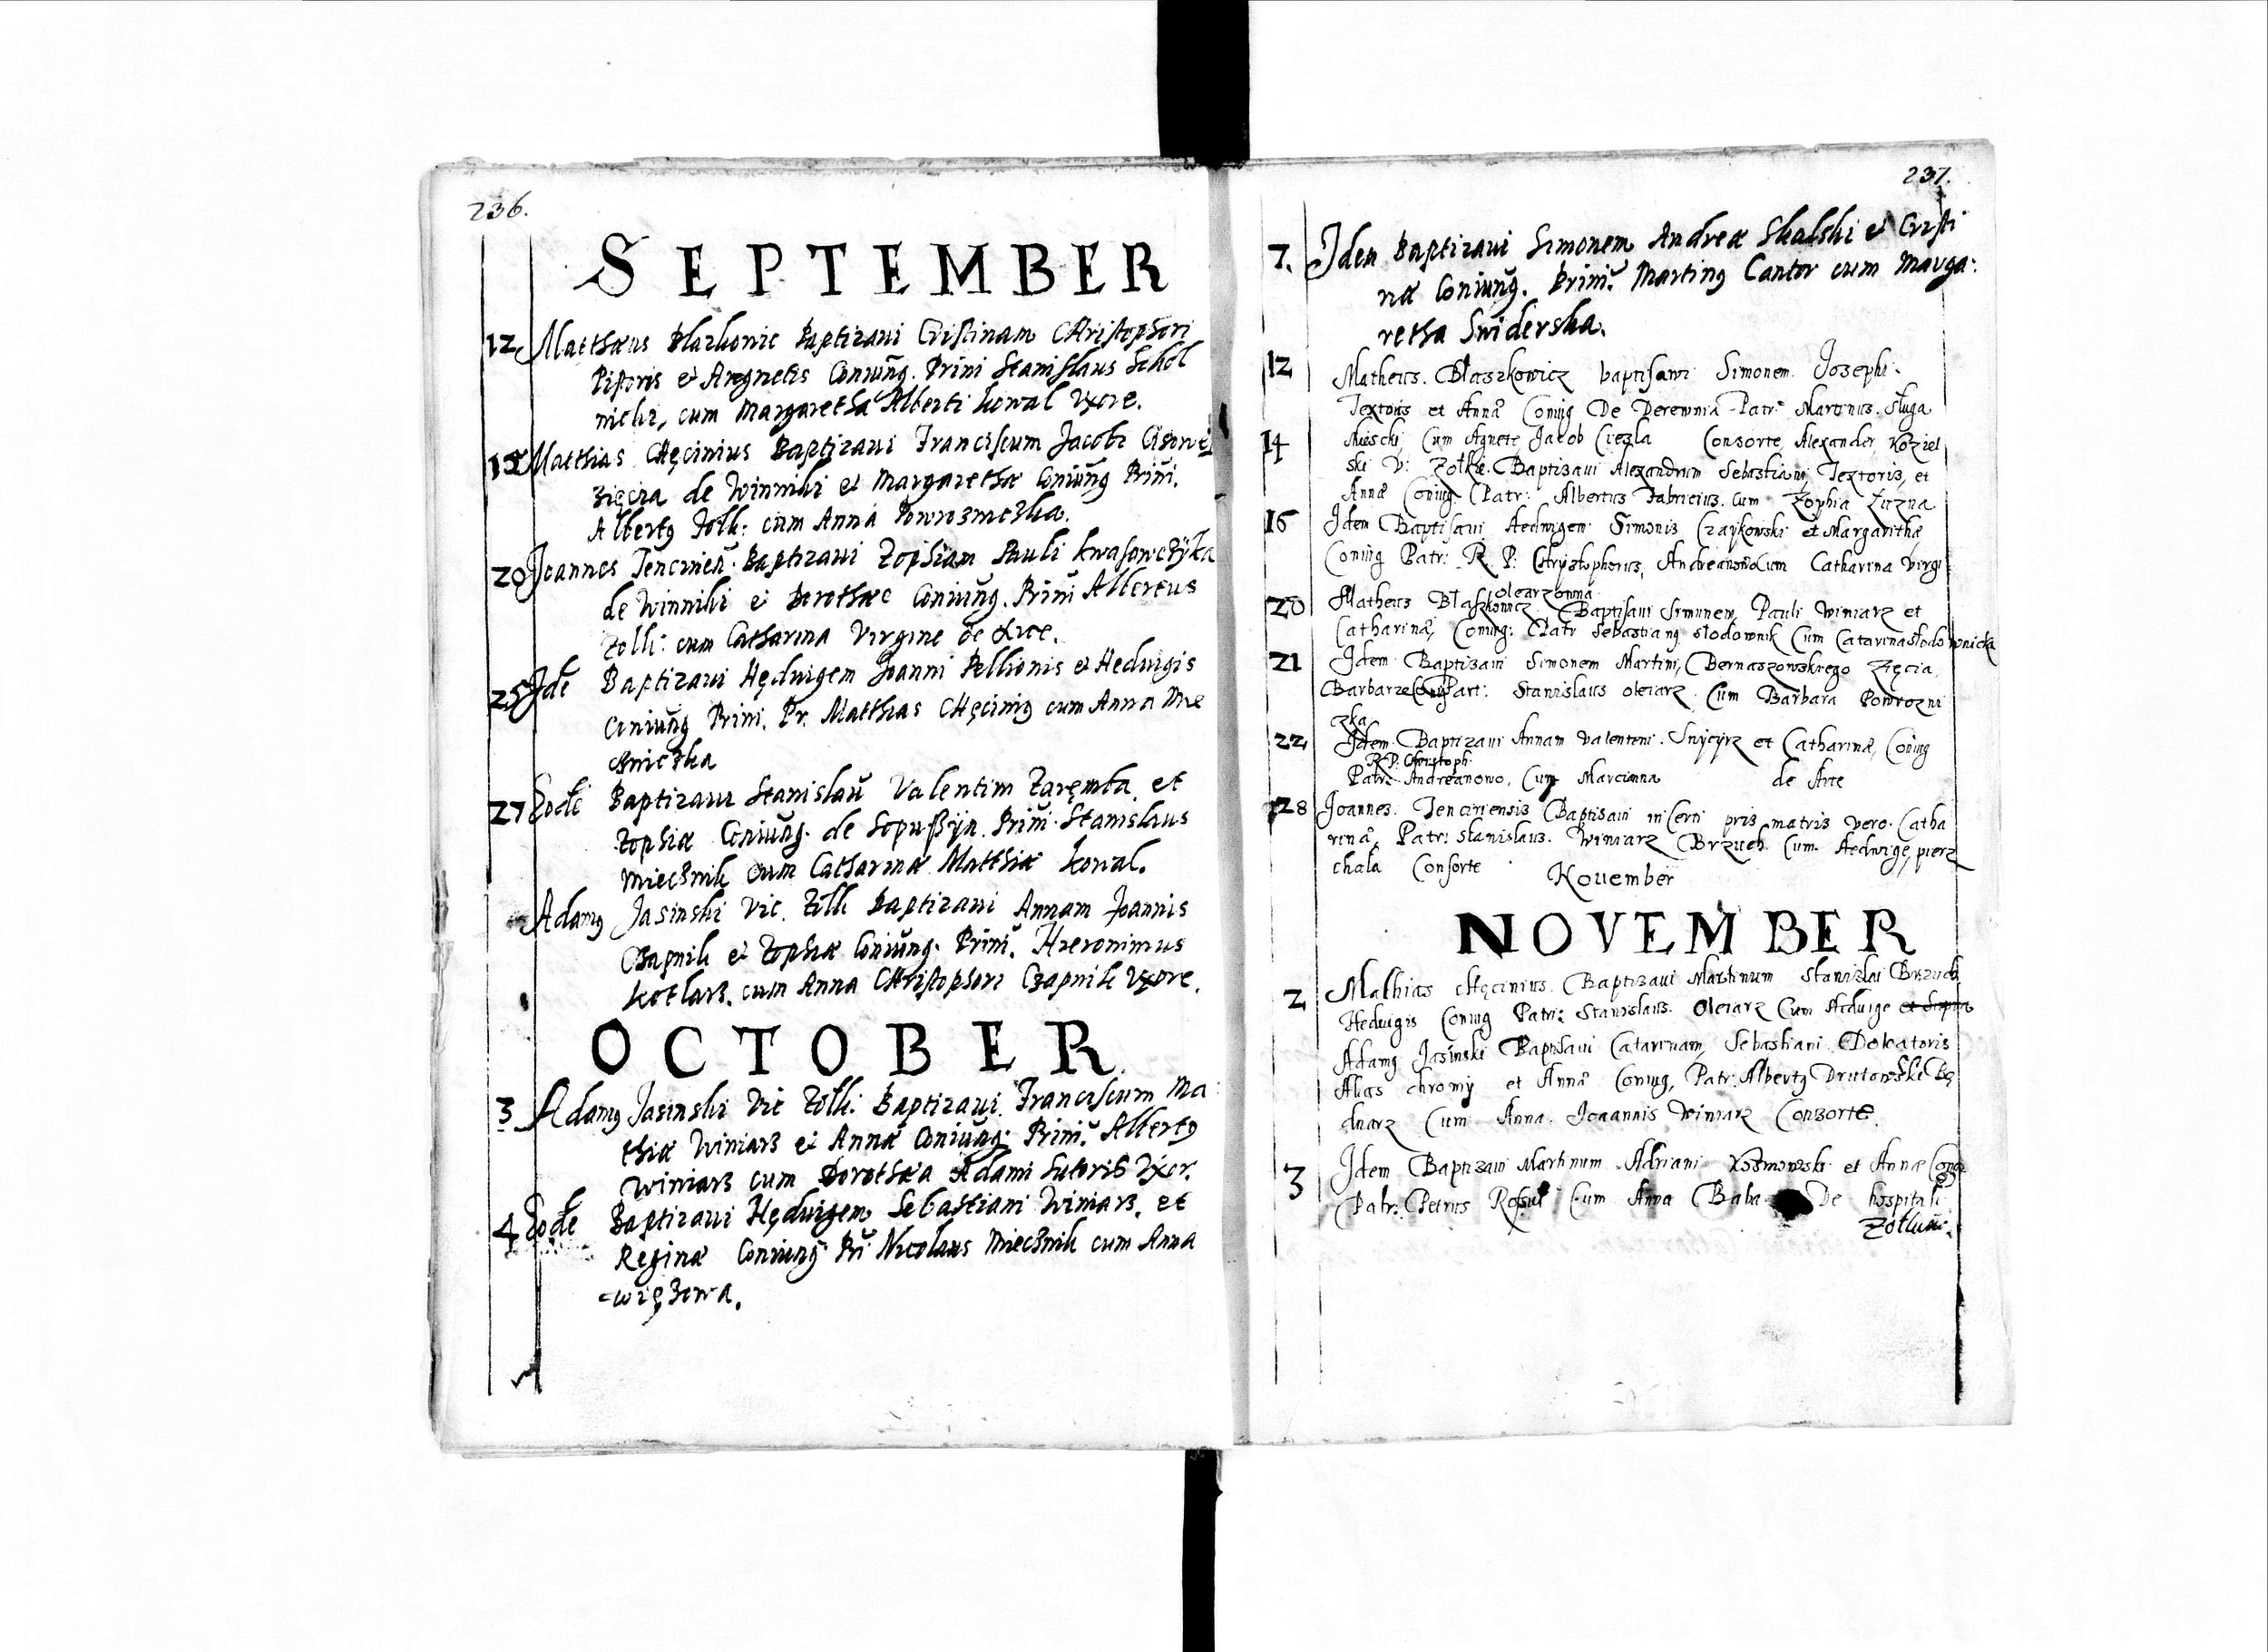 236.
SEPTEMBER
12 Matthæus Blazkonic Baptizaui Cristinam Christophori
Pistoris et Angnetis Coniung. Prini Stanislaus Schol
nicki, cum Margaretha Alberti Kowal Vxore.
15 Matthias Chęcinius Baptizaui Franciscum Jacobi
zięcia de Winniki et Margarethæ Coniung Prini.
Albertq Zolk: cum Anna Powrozniczka.
20 Joannes Tencinen. Baptizaui Zophiam Pauli Kwasowczÿka
de Winniki et Dorothæe Coniung. Prini Albertus
Zolk: cum Catharina Virgine de Arce.
25 Ide Baptizaui Hęduigem Joanni Pellionis et Heduigis
Coniung Prini. Pr. Matthias Chęciniq cum Anna Mie
chniczka
27 Eode Baptizaui Stanislau Valentini Zaręmba. et
Zophiæ Coniung. de Sopußÿn. Prini. Stanislaus
Miecznik cum Catharinæ Matthiæ Kowal.
Adamq Jasinski Vic. Zolk Baptizaui Annam Joannis
Czapnik et Zophiæ Coniung. Prini. Hieronimus
Kotlarz. cum Anna Christophori Czapnik Vxore.
OCTOBER
3 Adamq Jasinski Vic Zolk: Baptizaui Franciscum Ma:
thiæ Winiarz et Annæ Coniung: Prini. Albertq
Winiarz cum Dorothæa Adami Sutoris Vxor.
4 Eode Baptizaui Hęduigem Sebastiani Winiarz. et
Reginæ Coniung Pri Nicolaus Miecznik cum Anna
237.
7. Idem Baptizaui Simonem Andreæ Skalski et Cristi
næ Coniung. Prini. Martinq Cantor cum Marga:
retha Swiderska.
12 Matheus. Błaszkowicz baptisaui Simonem Josephi.
Textoris et Annæ Coniug De Derewnia Patr: Martinus. sługa
14 Miescki, Cum Agnete, Jacob Ciezla Consorte, Alexander, Koziel
ski V: Zołkie. Baptizaui Alexandrum Sebastiani, Textoris, et
Annæ Coniug Patr: Albertus Fabricius. cum Zophia Luzna
16 Idem Baptisaui Aedwigem Simonis Czaykowski et Margarithæ
Coniug Patr: R. P: Chrystophorus, Andreanow Cum Catharina virgi
olearzowna
20 Matheus Błaszkowicz Baptisaui Simonem, Pauli winiarz et
Catharinæ, Coniug: Patr Sebastianq słodownik Cum Catarina słodownicka
21 Idem Baptizaui Simonem Martini, Bernaszowskiego Zięcia,
Barbarze Coniug Patr: Stanislaus oleiarz Cum Barbara Powrozni
czka
22 Idem Baptizaui Annam valenteni. Snÿcÿrz et Catharinæ, Coniug
R.P. Christoph:
Patr: Andreanowo, Cum Marcianna de Arce
28 Joannes. Tenciniensis Baptisaui inCerti pris matris vero. Catha
rinæ, Patr: stanislaus. Winiarz Brzuch Cum. Aedwige, pierz
chala Consorte
Nouember
NOVEMBER
2 Mathias Chęcinius. Baptizaui Martinum Stanislai Brzuch
Heduigis Coniug Patr: Stanislaus. Oleiarz Cum Aeduige
Adamq Jasinski Baptisaui Catarinam, Sebastiani Doleatoris
Alias chromÿ et Annæ Coniug, Patr: Albertq Drutowski Bę
dnarz Cum Anna. Joaannis Winiarz Consorte.
3 Idem Baptizaui Martinum Adriani Kosmowski et Annæ Coniug
Patr: Petrus Rosul Cum Anna Baba De hospitali